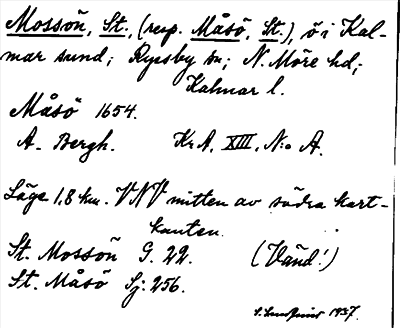 Mossön, St., (resp. Måsö, St.), ö i Kal-
mar sund; Ryssby sn; N. Möre hd;
Kalmar l.
Måsö 1654.
A. Bergh. Kr A, XIII, N:o A.
Läge 1,8 km. VNV mitten av södra kart-
kanten.
St. Mossön G. 22. (Vänd!)
St. Måsö Sj: 256.
1937.